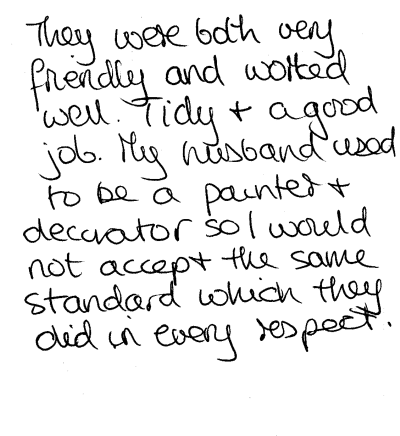 They were both very
friendly and worked
well. Tidy + a good
job. My husband used
to be a painter +
decorator so I would
not accept the same
standard which they
did in every respect.